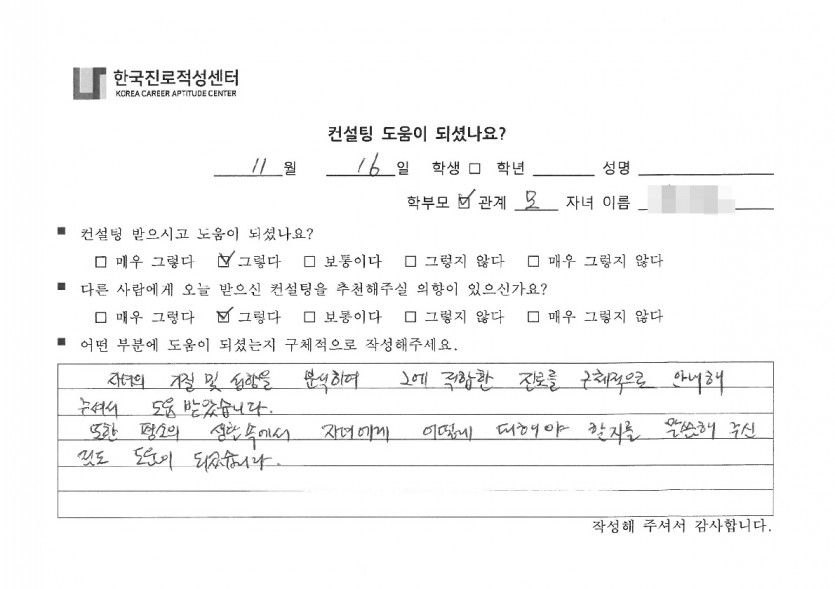 한국진로적성센터
KOREA CAREER APTITUDE CENTER
컨설팅 도움이 되셨나요?
11 월 16 일 학생 □ 학년 성명
학부모 ☑ 관계 모 자녀 이름
■ 컨설팅 받으시고 도움이 되셨나요?
□ 매우 그렇다 ☑ 그렇다 □ 보통이다 □ 그렇지 않다 □ 매우 그렇지 않다
■ 다른 사람에게 오늘 받으신 컨설팅을 추천해주실 의향이 있으신가요?
□ 매우 그렇다 ☑ 그렇다 □ 보통이다 □ 그렇지 않다 □ 매우 그렇지 않다
■ 어떤 부분에 도움이 되셨는지 구체적으로 작성해주세요.
자녀의 기질 및 성향을 분석하여 그에 적합한 진로를 구체적으로 안내해
주셔서 도움 받았습니다.
또한 평소의 생활속에서 자녀에게 어떻게 대해야 할지를 말씀해 주신
것도 도움이 되었습니다.
작성해 주셔서 감사합니다.